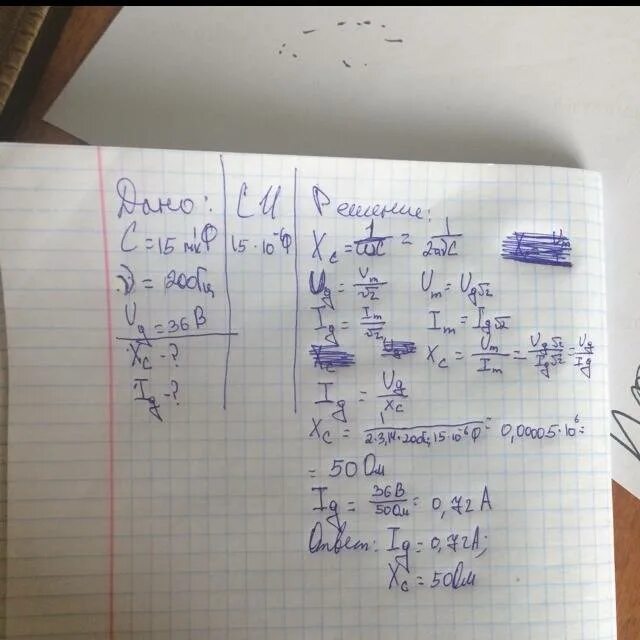 Дано:
C = 15 мкФ
ν = 200Гц
Uд = 36В
Xc - ?
Iд - ?
СИ
15·10⁻⁶Ф
Решение:
Xc = 1/ωC = 1/2πνC
Uд = Um/√2 Um = Uд√2
Iд = Im/√2 Im = Iд√2
Xc = Um/Im = Uд√2/Iд√2 = Uд/Iд
Iд = Uд/Xc
Xc = 1/2·3,14·200Гц·15·10⁻⁶Ф = 0,00005·10⁶ =
= 50 Ом
Iд = 36В/50Ом = 0,72 А
Ответ: Iд = 0,72А;
Xc = 50Ом